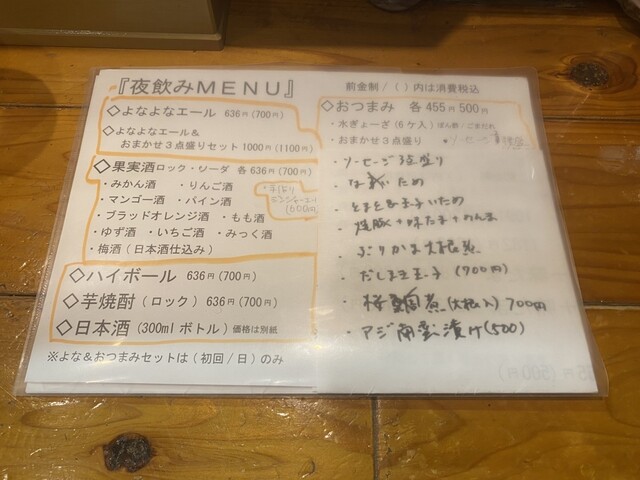 『夜飲みMENU』
◇よなよなエール 636円(700円)
◇よなよなエール&
おまかせ3点盛りセット 1000円(1100円)
◇果実酒ロック・ソーダ 各636円(700円)
・みかん酒 ・りんご酒
・マンゴー酒 ・パイン酒
・ブラッドオレンジ酒 ・もも酒
・ゆず酒 ・いちご酒 ・みっく酒
・梅酒(日本酒仕込み)
◇ハイボール 636円(700円)
◇芋焼酎(ロック) 636円(700円)
◇日本酒(300mlボトル) 価格は別紙
※よな&おつまみセットは(初回/日)のみ
前金制/( )内は消費税込
◇おつまみ 各455円500円
・水ぎょーざ(6ケ入) ぽん酢/ごまだれ
・おまかせ3点盛り
・ソーセージ3点盛り
・とまと&玉子いため
・焼豚+味たま+めんま
・ぶりかま大根煮
・だしまき玉子 (700円)
・桜鯛煮(大根入) 700円
・アジ南蛮漬け(500)